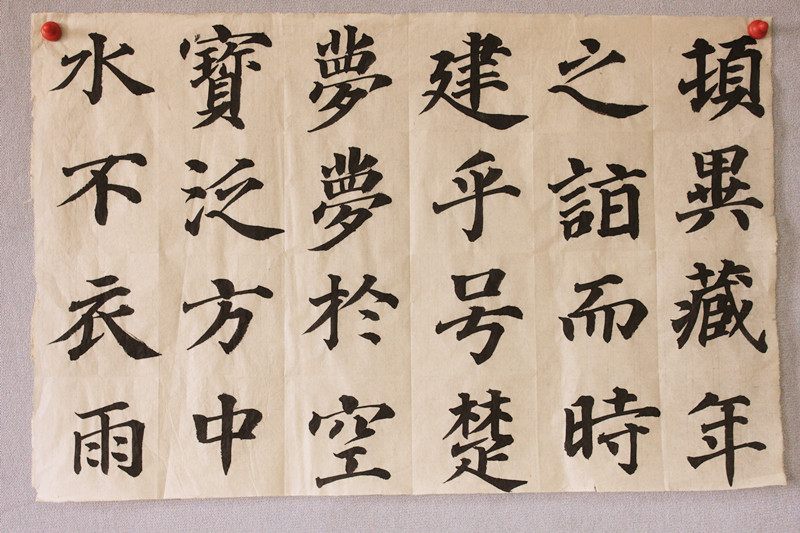 藏年
之而時
建乎号楚
夢夢於空
寶泛方中
水不衣雨